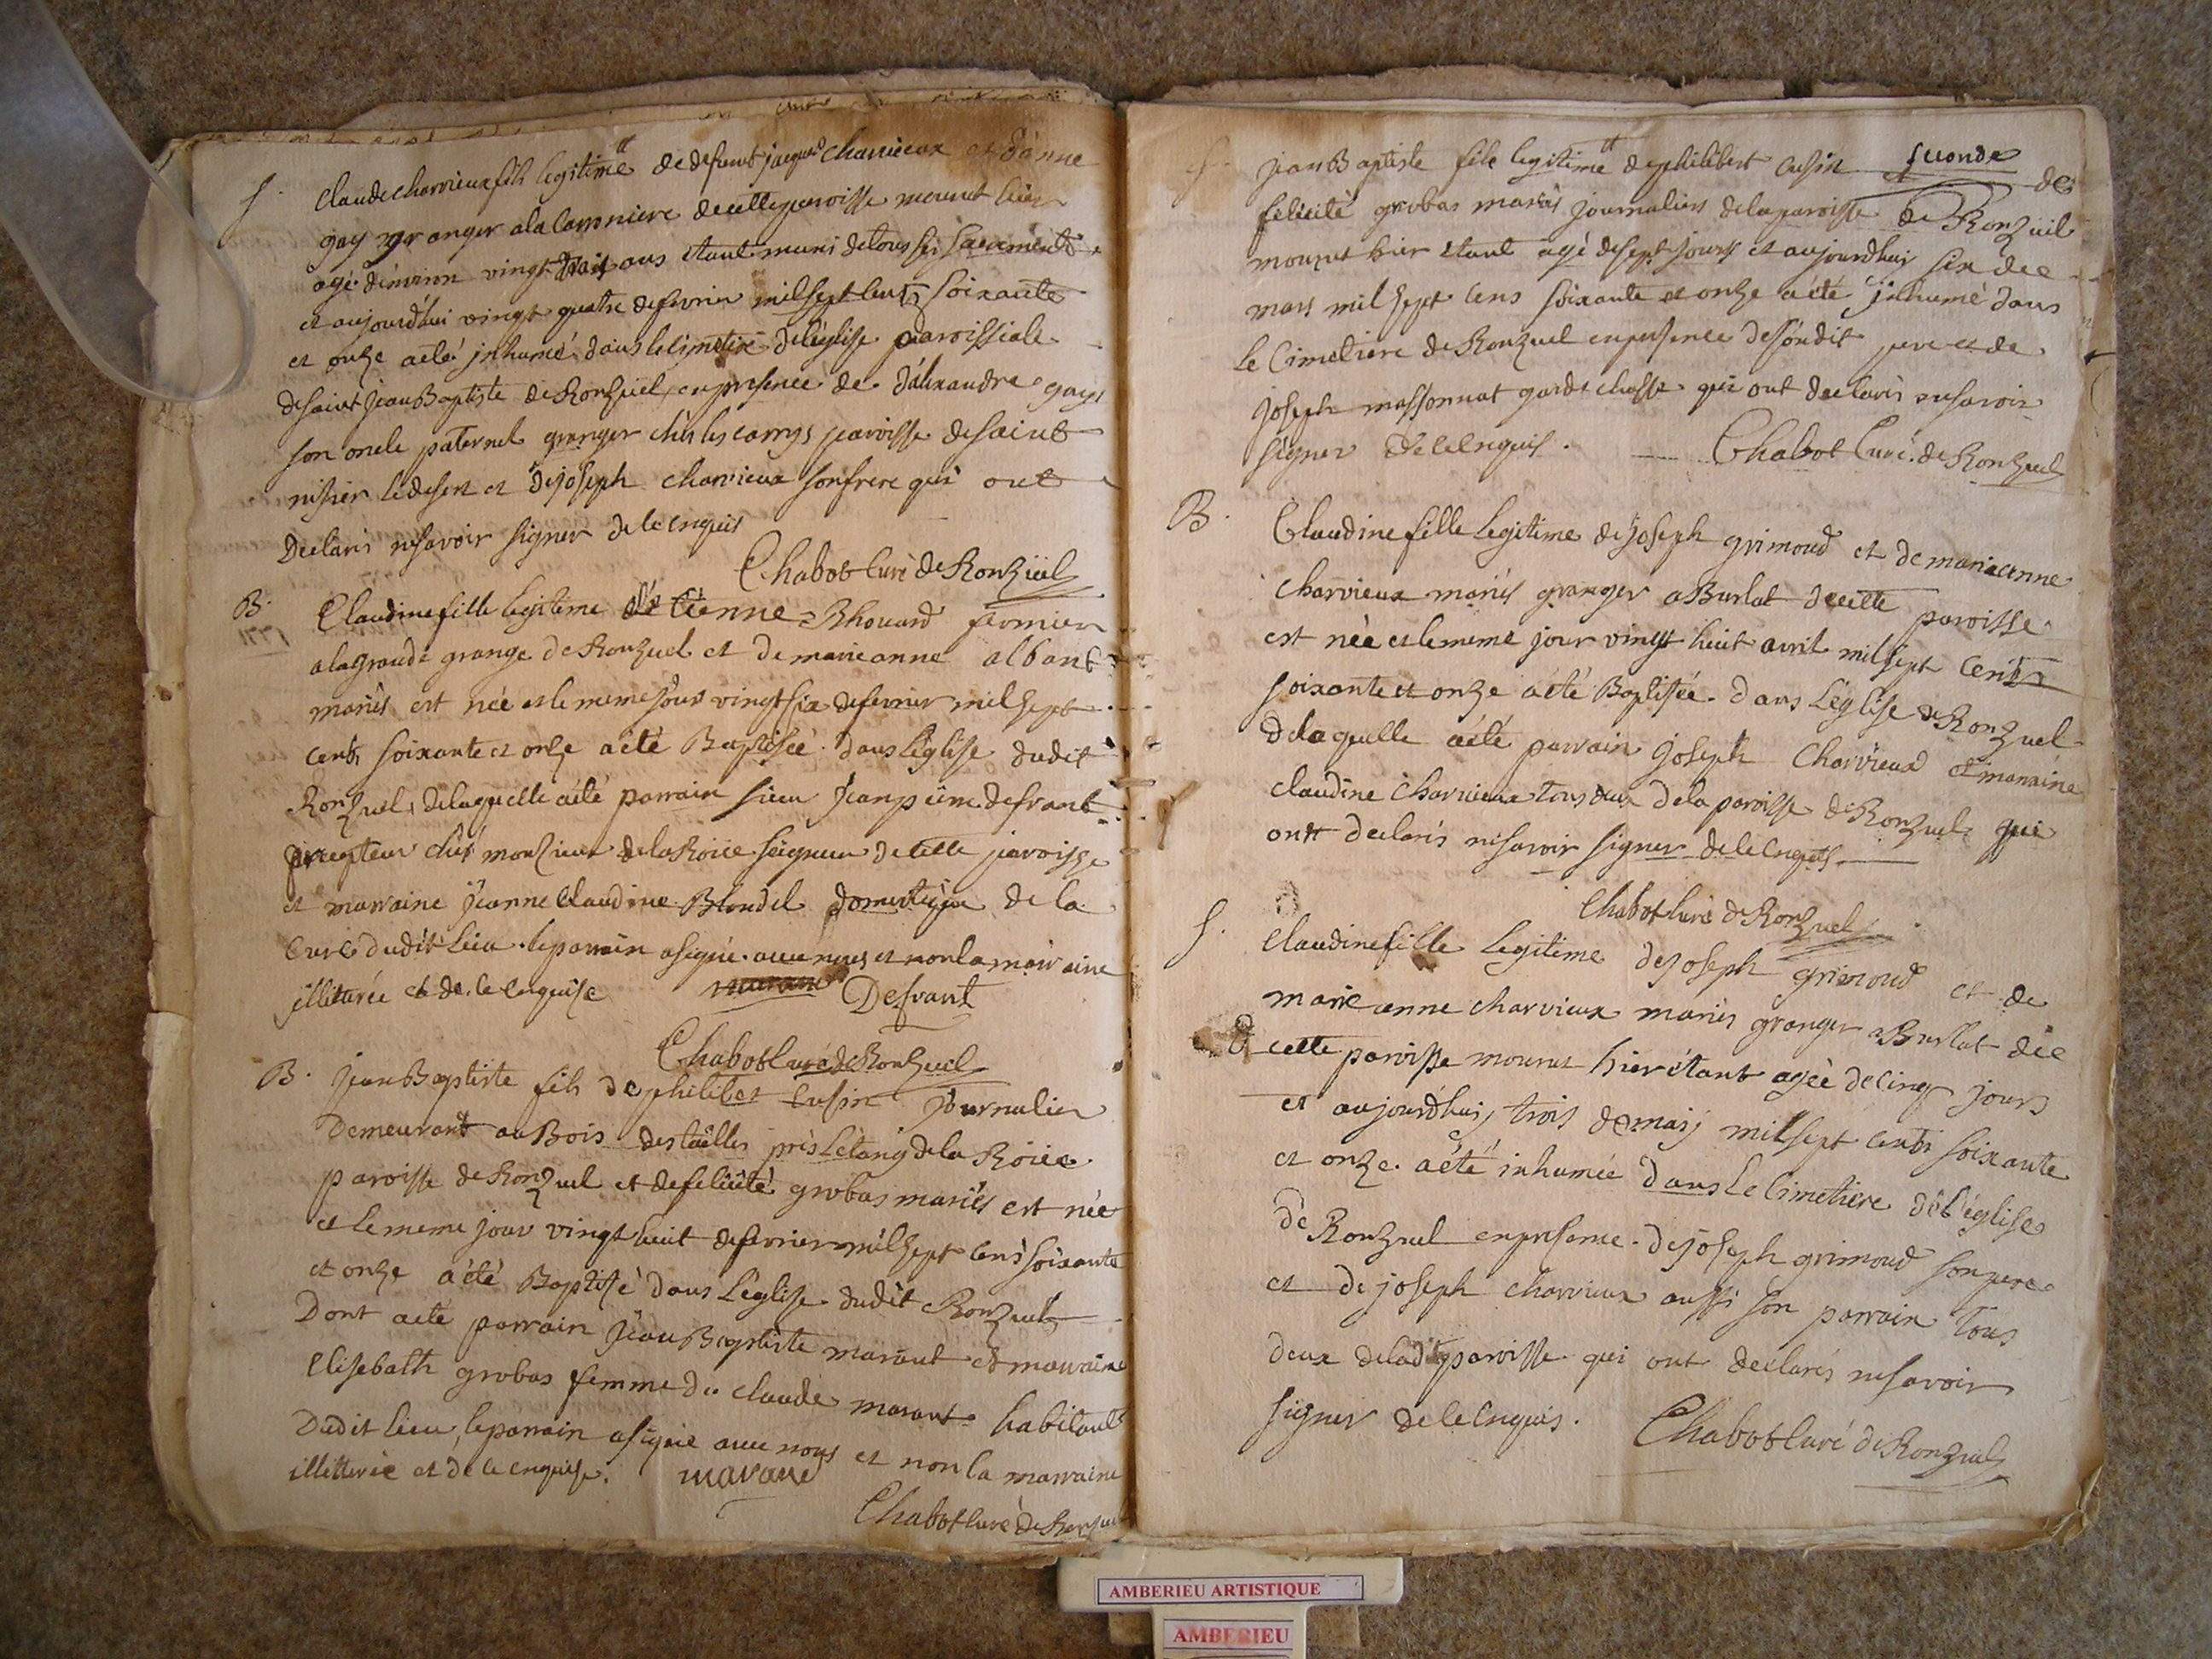 S. Claude charvieux fils legitime tt de defunt jacques charvieux et d'anne
gay granger a la Carronniere de cette paroisse mourut hier
agé d'environ vingt trois ans etant muni de tous ses sacrements
et aujourd'hui vingt quatre de fevrier mil sept cents soixante
et onze a eté inhumé dans le cimetiere de l'eglise paroissiale
de saint Jean Baptiste de Ronzuel, en presence de d'alixandre gay
son oncle paternel granger chès les carrys paroisse de saint
nisier le desert et de joseph charvieux son frere qui ont
declarés ne savoir signer de ce enquis
Chabot Curé de Ronzuel
B. Claudine fille legitime d'étienne Rhouard fermier
a la grande grange de Ronzuel et de marie anne albant
mariés est née et le meme jour vingt six de fevrier mil sept
cents soixante et onze a été Baptisée dans l'église dudit
Ronzuel, de laquelle a été parrain sieur Jean pierre defrant
precepteur chés monsieur de la Roüe seigneur de cette paroisse
et marraine jeanne Claudine Blondel domestique de la
Cure dudit lieu. le parrain a signé avec nous et non la marraine
illiterée et de ce enquise Defrant
Chabot Curé de Ronzuel
B. Jean Baptiste fils de philibert Cusin journalier
demeurant au Bois des tailles près l'étang de la Roüe
paroisse de Ronzuel et de felicité grobas mariés est née
et le meme jour vingt huit de fevrier mil sept cens soixante
et onze a été Baptisé dans l'église dudit Ronzuel
Dont a eté parrain jean Baptiste marant et marraine
Elisebath grobas femme de claude marant habitants
Dudit lieu, le parrain a signé avec nous et non la marraine
illetterée et de ce enquise. marant
Chabot Curé de Ronzuel
S. jean Baptiste fils legitime tt de philibert Cusin et de
felicité grobas mariés journaliers de la paroisse de Ronzuel
mourut hier etant agé de sept jours et aujourdhui six de
mars mil sept cens soixante et onze a été inhumé dans
le Cimetiere de Ronzuel en presence de son dit pere et de
joseph massonnat garde chasse qui ont declarés ne savoir
signer de ce enquis. Chabot Curé de Ronzuel
B. Claudine fille legitime de joseph grimoud et de marie anne
charvieux mariés granger a Burlat de cette paroisse
est née et le meme jour vingt huit avril mil sept cents
soixante et onze a eté Baptisée dans l'église de Ronzuel
de laquelle a été parrain joseph Charvieux et marraine
claudine charvieux tous deux de la paroisse de Ronzuel qui
ont declarés ne savoir signer de ce enquis
Chabot Curé de Ronzuel
S. Claudine fille legitime de joseph grimoud et de
marie anne charvieux mariés granger a Burlat de
cette paroisse mourut hier étant agée de cinq jours
et aujourd'hui, trois de may mil sept cents soixante
et onze a été inhumée dans le cimetiere de l'église
de Ronzuel en presence de joseph grimoud son pere
et de joseph charvieux aussi son parrain tous
deux de la dite paroisse qui ont declarés ne savoir
signer de ce enquis. Chabot Curé de Ronzuel
AMBERIEU ARTISTIQUE
AMBERIEU